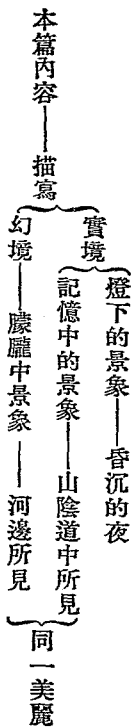 本篇內容——描寫
實境
燈下的景象——昏沉的夜
記憶中的景象——山陰道中所見
幻境——朦朧中景象——河邊所見
同一美麗